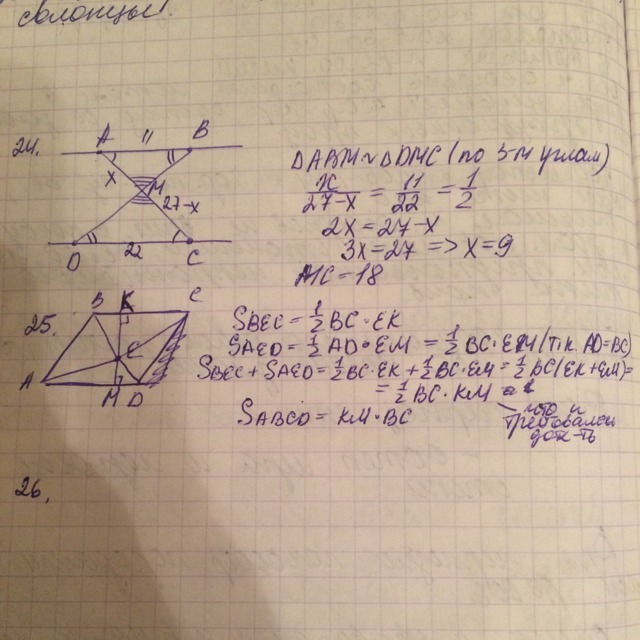 сволонцы!
24.
A 11 B
x
M
27-x
D 22 C
ΔABM ~ ΔDMC (по 5-м углам)
x/27-x = 11/22 = 1/2
2x = 27-x
3x = 27 => x = 9
MC = 18
25.
B K C
E
A M D
SBEC = 1/2 BC · EK
SAED = 1/2 AD · EM = 1/2 BC · EM (т.к. AD=BC)
SBEC + SAED = 1/2 BC · EK + 1/2 BC · EM = 1/2 BC (EK + EM) =
= 1/2 BC · KM
SABCD = KM · BC
что и
требовалось
док-ть
26.